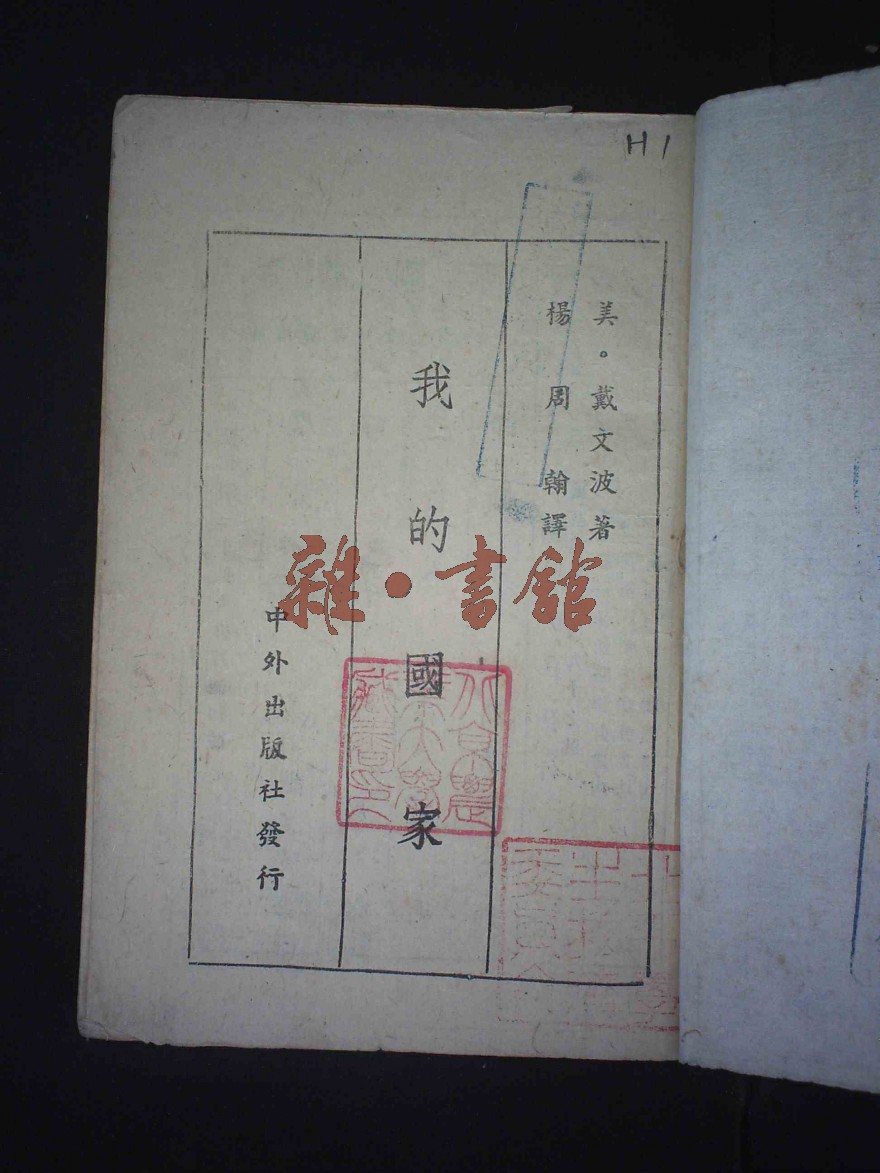 H1
美。戴文波著
楊周翰譯
我的國家
中外出版社發行
雜・書館